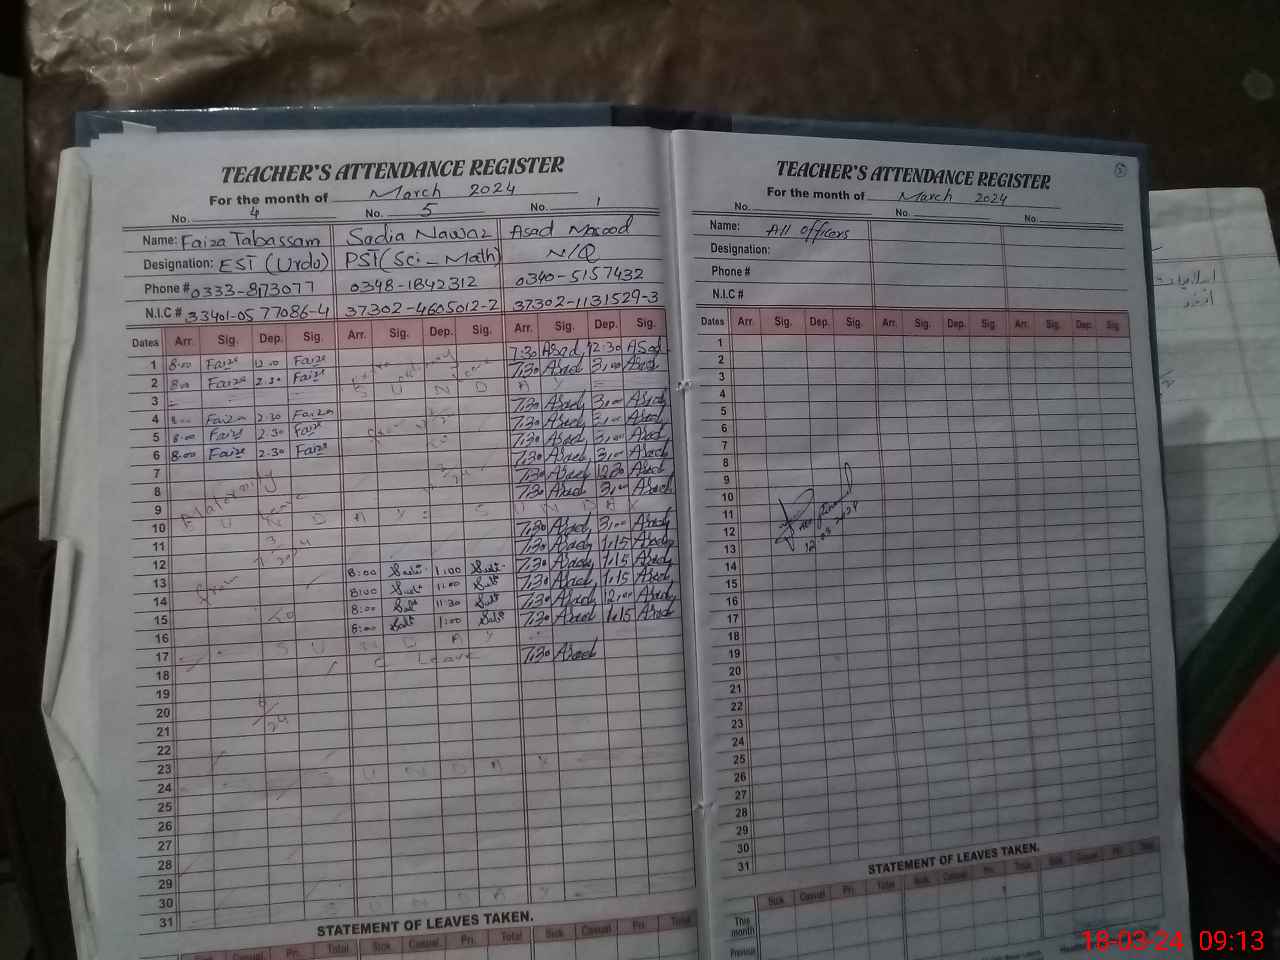 TEACHER'S ATTENDANCE REGISTER
For the month of March 2024
No. 4 No. 5 No. 1
Name: Faiza Tabassam Sadia Nawaz Asad Masood
Designation: EST (Urdu) PST (Sci-Math) N/Q
Phone # 0333-8173077 0348-1842312 0340-5157432
N.I.C # 33401-0577086-4 37302-4605012-2 37302-1131529-3
Dates Arr. Sig. Dep. Sig. Arr. Sig. Dep. Sig. Arr. Sig. Dep. Sig.
1 8:00 Faiza 12:00 Faiza 7:30 Asad 12:30 Asad
2 8:00 Faiza 2:30 Faiza 7:30 Asad 3:00 Asad
3 S U N D A Y
4 8:00 Faiza 2:30 Faiza 7:30 Asad 3:00 Asad
5 8:00 Faiza 2:30 Faiza 7:30 Asad 3:00 Asad
6 8:00 Faiza 2:30 Faiza 7:30 Asad 3:00 Asad
7 Maternity 7:30 Asad 3:00 Asad
8 Leave 7:30 Asad 12:30 Asad
9 7:30 Asad 3:00 Asad
10 S U N D A Y S U N D A Y
11 7:30 Asad 3:00 Asad
12 from 7:30 Asad 1:15 Asad
13 8:00 1:00 7:30 Asad 1:15 Asad
14 8:00 11:00 7:30 Asad 1:15 Asad
15 to 8:00 11:30 7:30 Asad 12:00 Asad
16 8:00 1:00 7:30 Asad 1:15 Asad
17 S U N D A Y
18 C Leave 7:30 Asad
19
20
21
22
23
24 S U N D A Y
25
26
27
28
29
30
31 S U N D A Y
STATEMENT OF LEAVES TAKEN.
Sick. Casual Pri. Total Sick. Casual Pri. Total Sick. Casual Pri. Total
TEACHER'S ATTENDANCE REGISTER
For the month of March 2024
No. No. No.
Name: All officers
Designation:
Phone #
N.I.C #
Dates Arr. Sig. Dep. Sig. Arr. Sig. Dep. Sig. Arr. Sig. Dep. Sig.
1
2
3
4
5
6
7
8
9
10
11
12
13 12.03.2024
14
15
16
17
18
19
20
21
22
23
24
25
26
27
28
29
30
31
STATEMENT OF LEAVES TAKEN.
Sick. Casual Pri. Total Sick. Casual Pri. Total Sick. Casual Pri. Total
This month
Previous
18-03-24 09:13